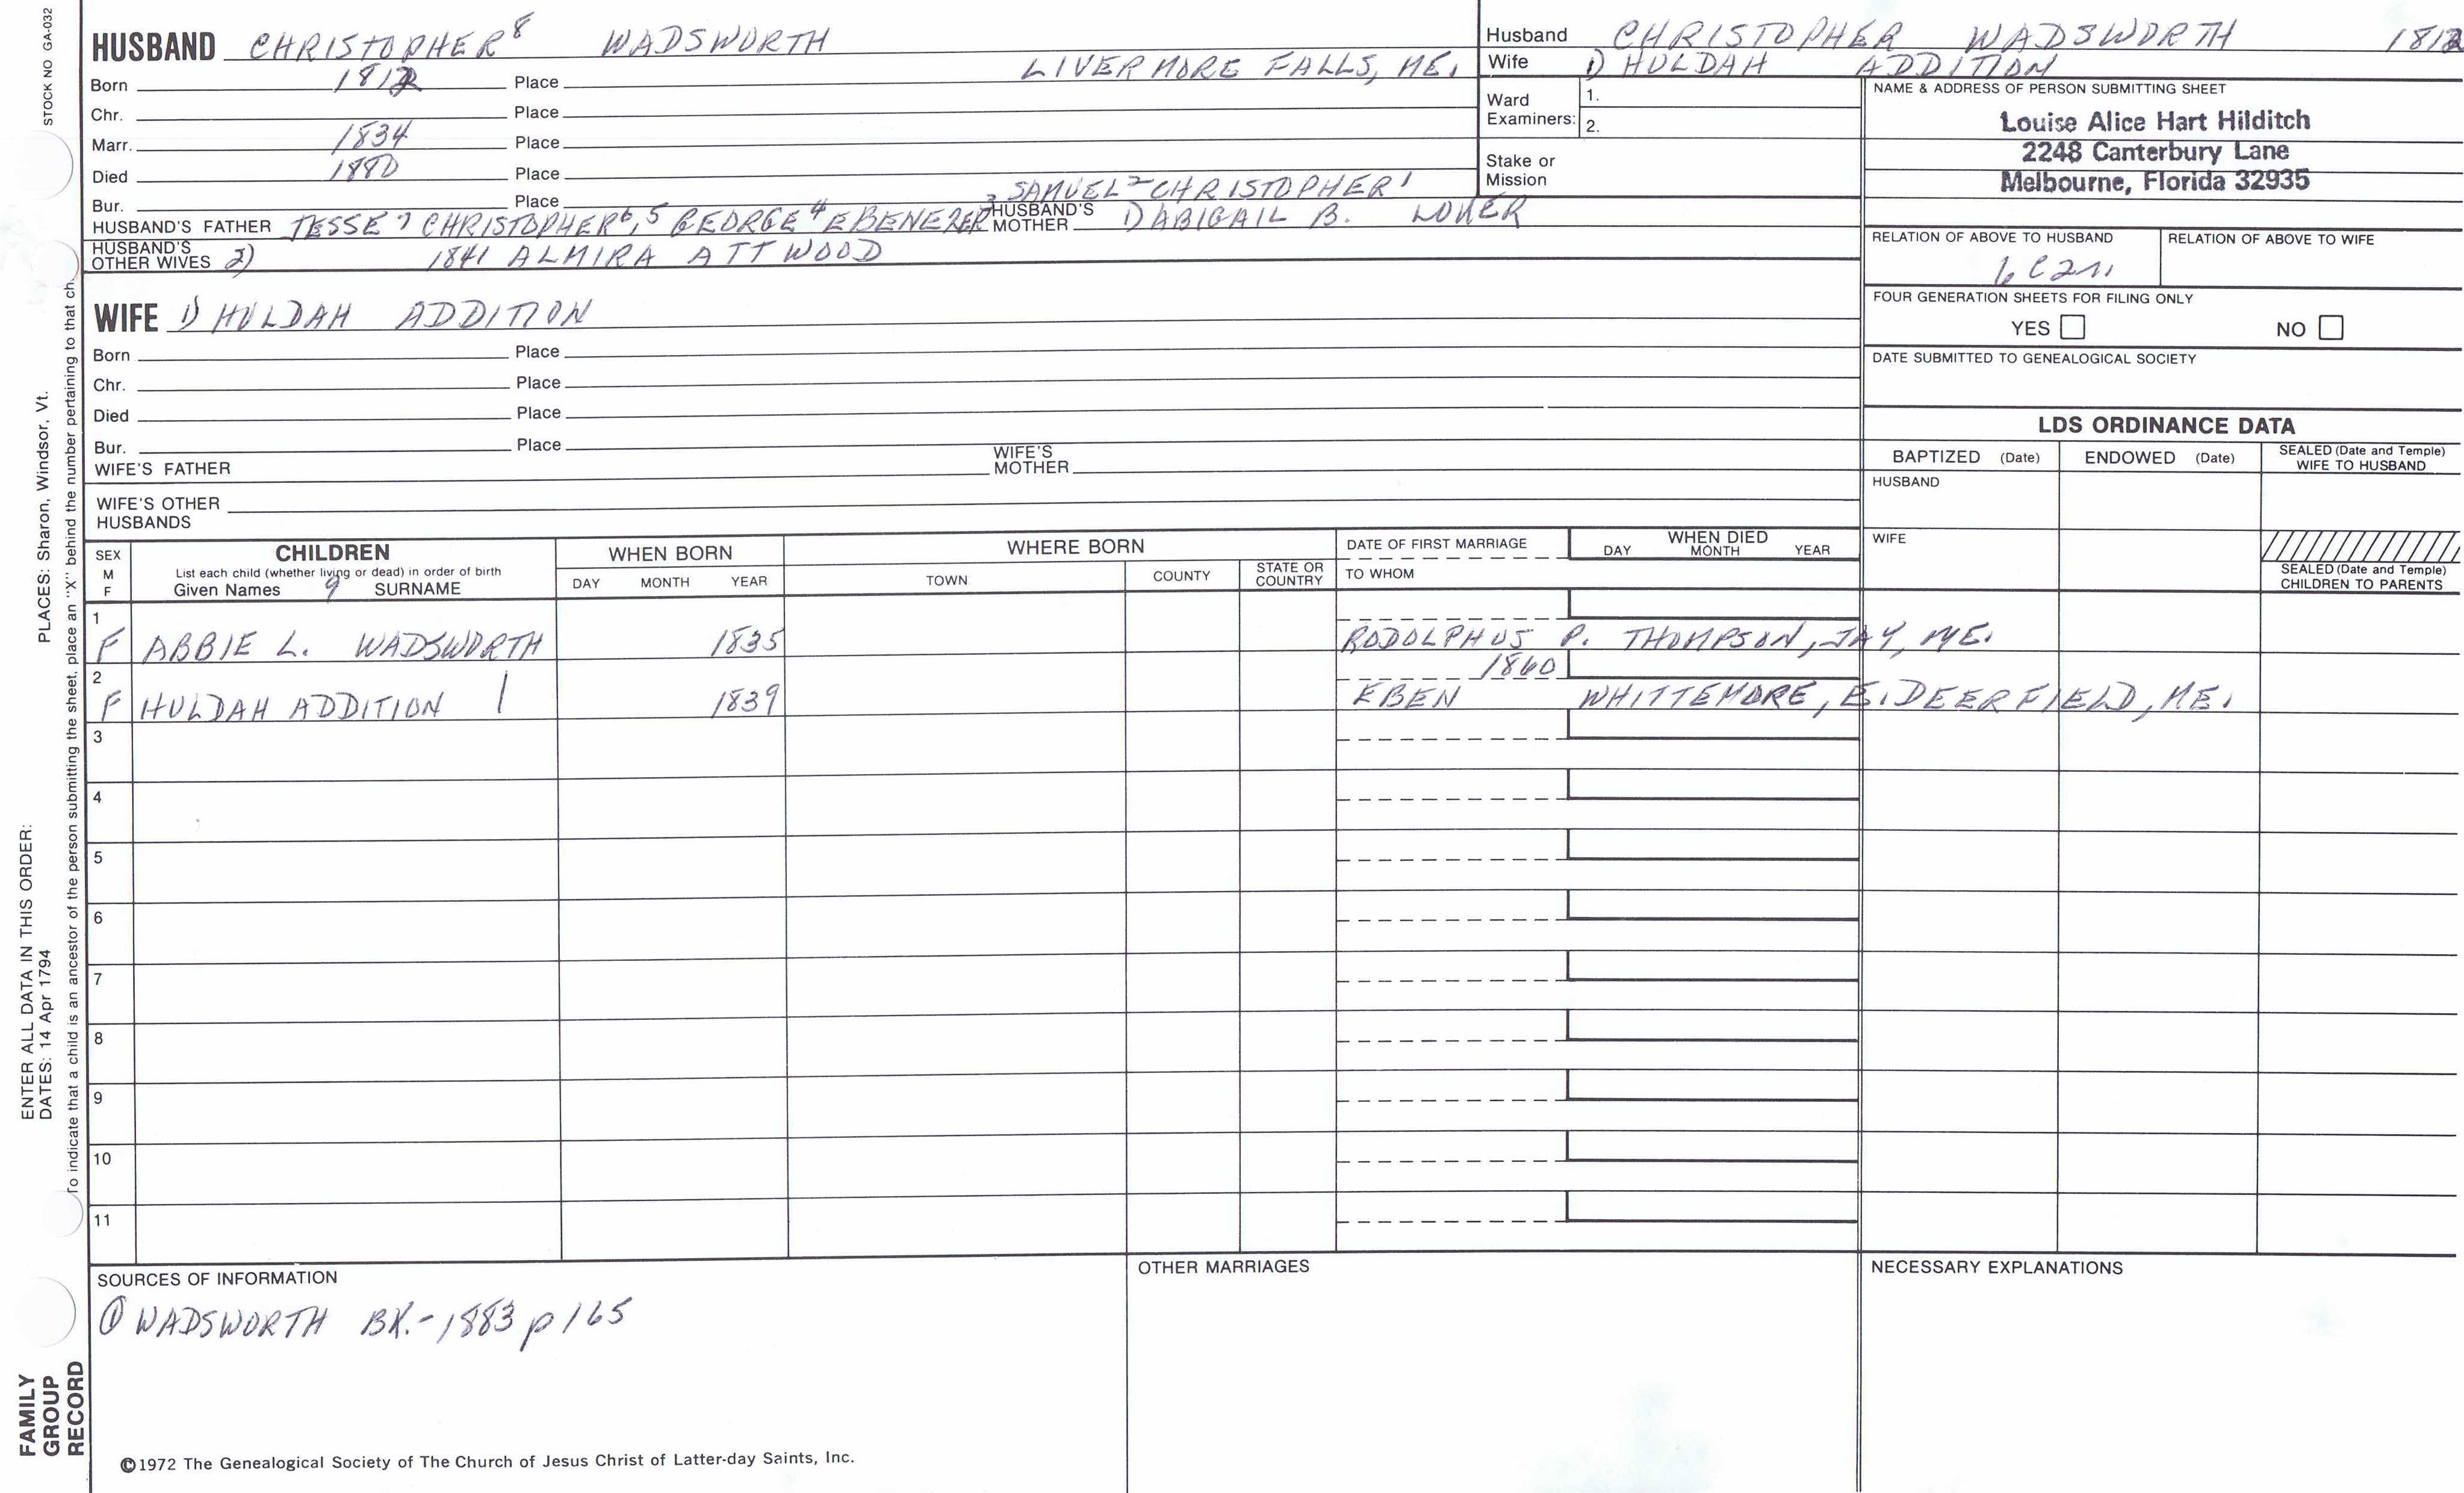 STOCK NO GA-032
HUSBAND CHRISTOPHER⁸ WADSWORTH
Born 1812 Place LIVERMORE FALLS, ME.
Chr. Place
Marr. 1834 Place
Died 1880 Place
Bur. Place
³ SAMUEL² CHRISTOPHER¹
HUSBAND'S FATHER JESSE⁷ CHRISTOPHER⁶,⁵ GEORGE⁴ EBENEZER HUSBAND'S MOTHER 1) ABIGAIL B.
HUSBAND'S OTHER WIVES 2) 1841 ALMIRA ATTWOOD
Husband CHRISTOPHER WADSWORTH 1812
Wife 1) HULDAH ADDITION
Ward Examiners: 1.
2.
Stake or Mission
NAME & ADDRESS OF PERSON SUBMITTING SHEET
Louise Alice Hart Hilditch
2248 Canterbury Lane
Melbourne, Florida 32935
RELATION OF ABOVE TO HUSBAND RELATION OF ABOVE TO WIFE
FOUR GENERATION SHEETS FOR FILING ONLY
YES NO
DATE SUBMITTED TO GENEALOGICAL SOCIETY
WIFE 1) HULDAH ADDITION
Born Place
Chr. Place
Died Place
Bur. Place
WIFE'S FATHER WIFE'S MOTHER
WIFE'S OTHER HUSBANDS
LDS ORDINANCE DATA
BAPTIZED (Date) ENDOWED (Date) SEALED (Date and Temple) WIFE TO HUSBAND
HUSBAND
WIFE
SEALED (Date and Temple) CHILDREN TO PARENTS
SEX M F
CHILDREN
List each child (whether living or dead) in order of birth
Given Names 9 SURNAME
WHEN BORN
DAY MONTH YEAR
WHERE BORN
TOWN COUNTY STATE OR COUNTRY
DATE OF FIRST MARRIAGE
TO WHOM
WHEN DIED
DAY MONTH YEAR
1
F ABBIE L. WADSWORTH 1835 RODOLPHUS P. THOMPSON, JAY, ME.
2 1860
F HULDAH ADDITION | 1839 EBEN WHITTEMORE, E. DEERFIELD, ME.
3
4
5
6
7
8
9
10
11
SOURCES OF INFORMATION
① WADSWORTH BK.-1883 p 165
OTHER MARRIAGES
NECESSARY EXPLANATIONS
©1972 The Genealogical Society of The Church of Jesus Christ of Latter-day Saints, Inc.
ENTER ALL DATA IN THIS ORDER:
DATES: 14 Apr 1794 PLACES: Sharon, Windsor, Vt.
To indicate that a child is an ancestor of the person submitting the sheet, place an "X" behind the number pertaining to that ch
FAMILY
GROUP
RECORD